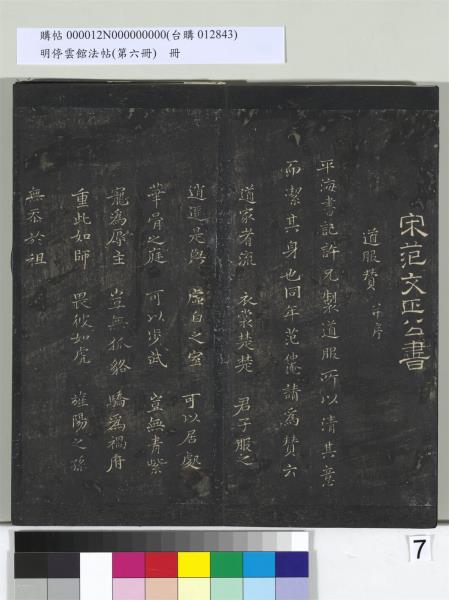 購帖 000012N000000000(台購 012843)
明停雲館法帖(第六冊) 冊
宋范文正公書
道服贊 并序
平海書記許兄製道服所以清其意
而潔其身也同年范僊請為贊云
道家者流 衣裳楚楚 君子服之
逍遙是與 虛白之室 可以居處
華胥之庭 可以步武 豈無青紫
寵為辱主 豈無狐貉 驕為禍府
重此如師 畏彼如虎 旌陽之孫
無忝於祖
7